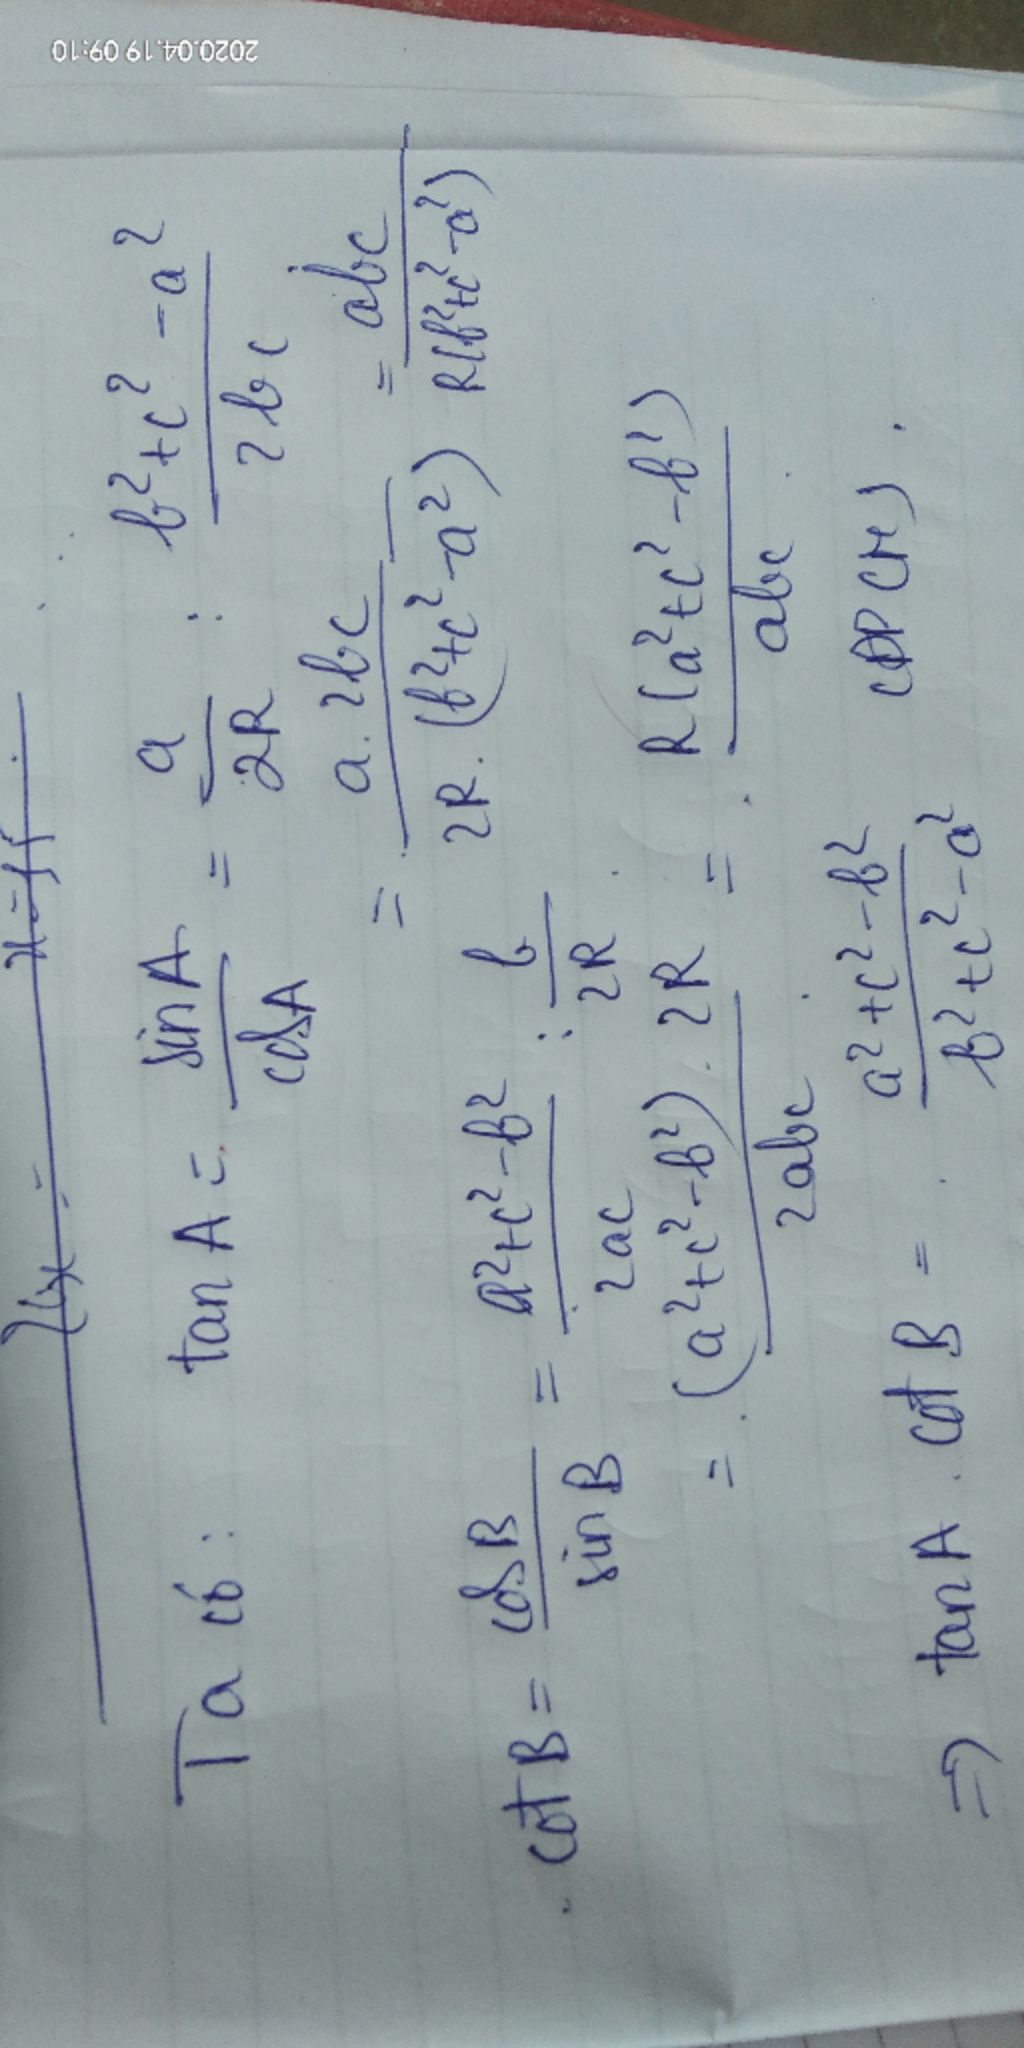 2020.04.19 09:10
Ta có: tan A = sin A / cos A = a / 2R : b² + c² - a² / 2bc
= a.2bc / 2R.(b² + c² - a²) = abc / R(b² + c² - a²)
cot B = cos B / sin B = a² + c² - b² / 2ac : b / 2R
= (a² + c² - b²).2R / 2abc = R(a² + c² - b²) / abc
⇒ tan A . cot B = a² + c² - b² / b² + c² - a² (ĐPCM).